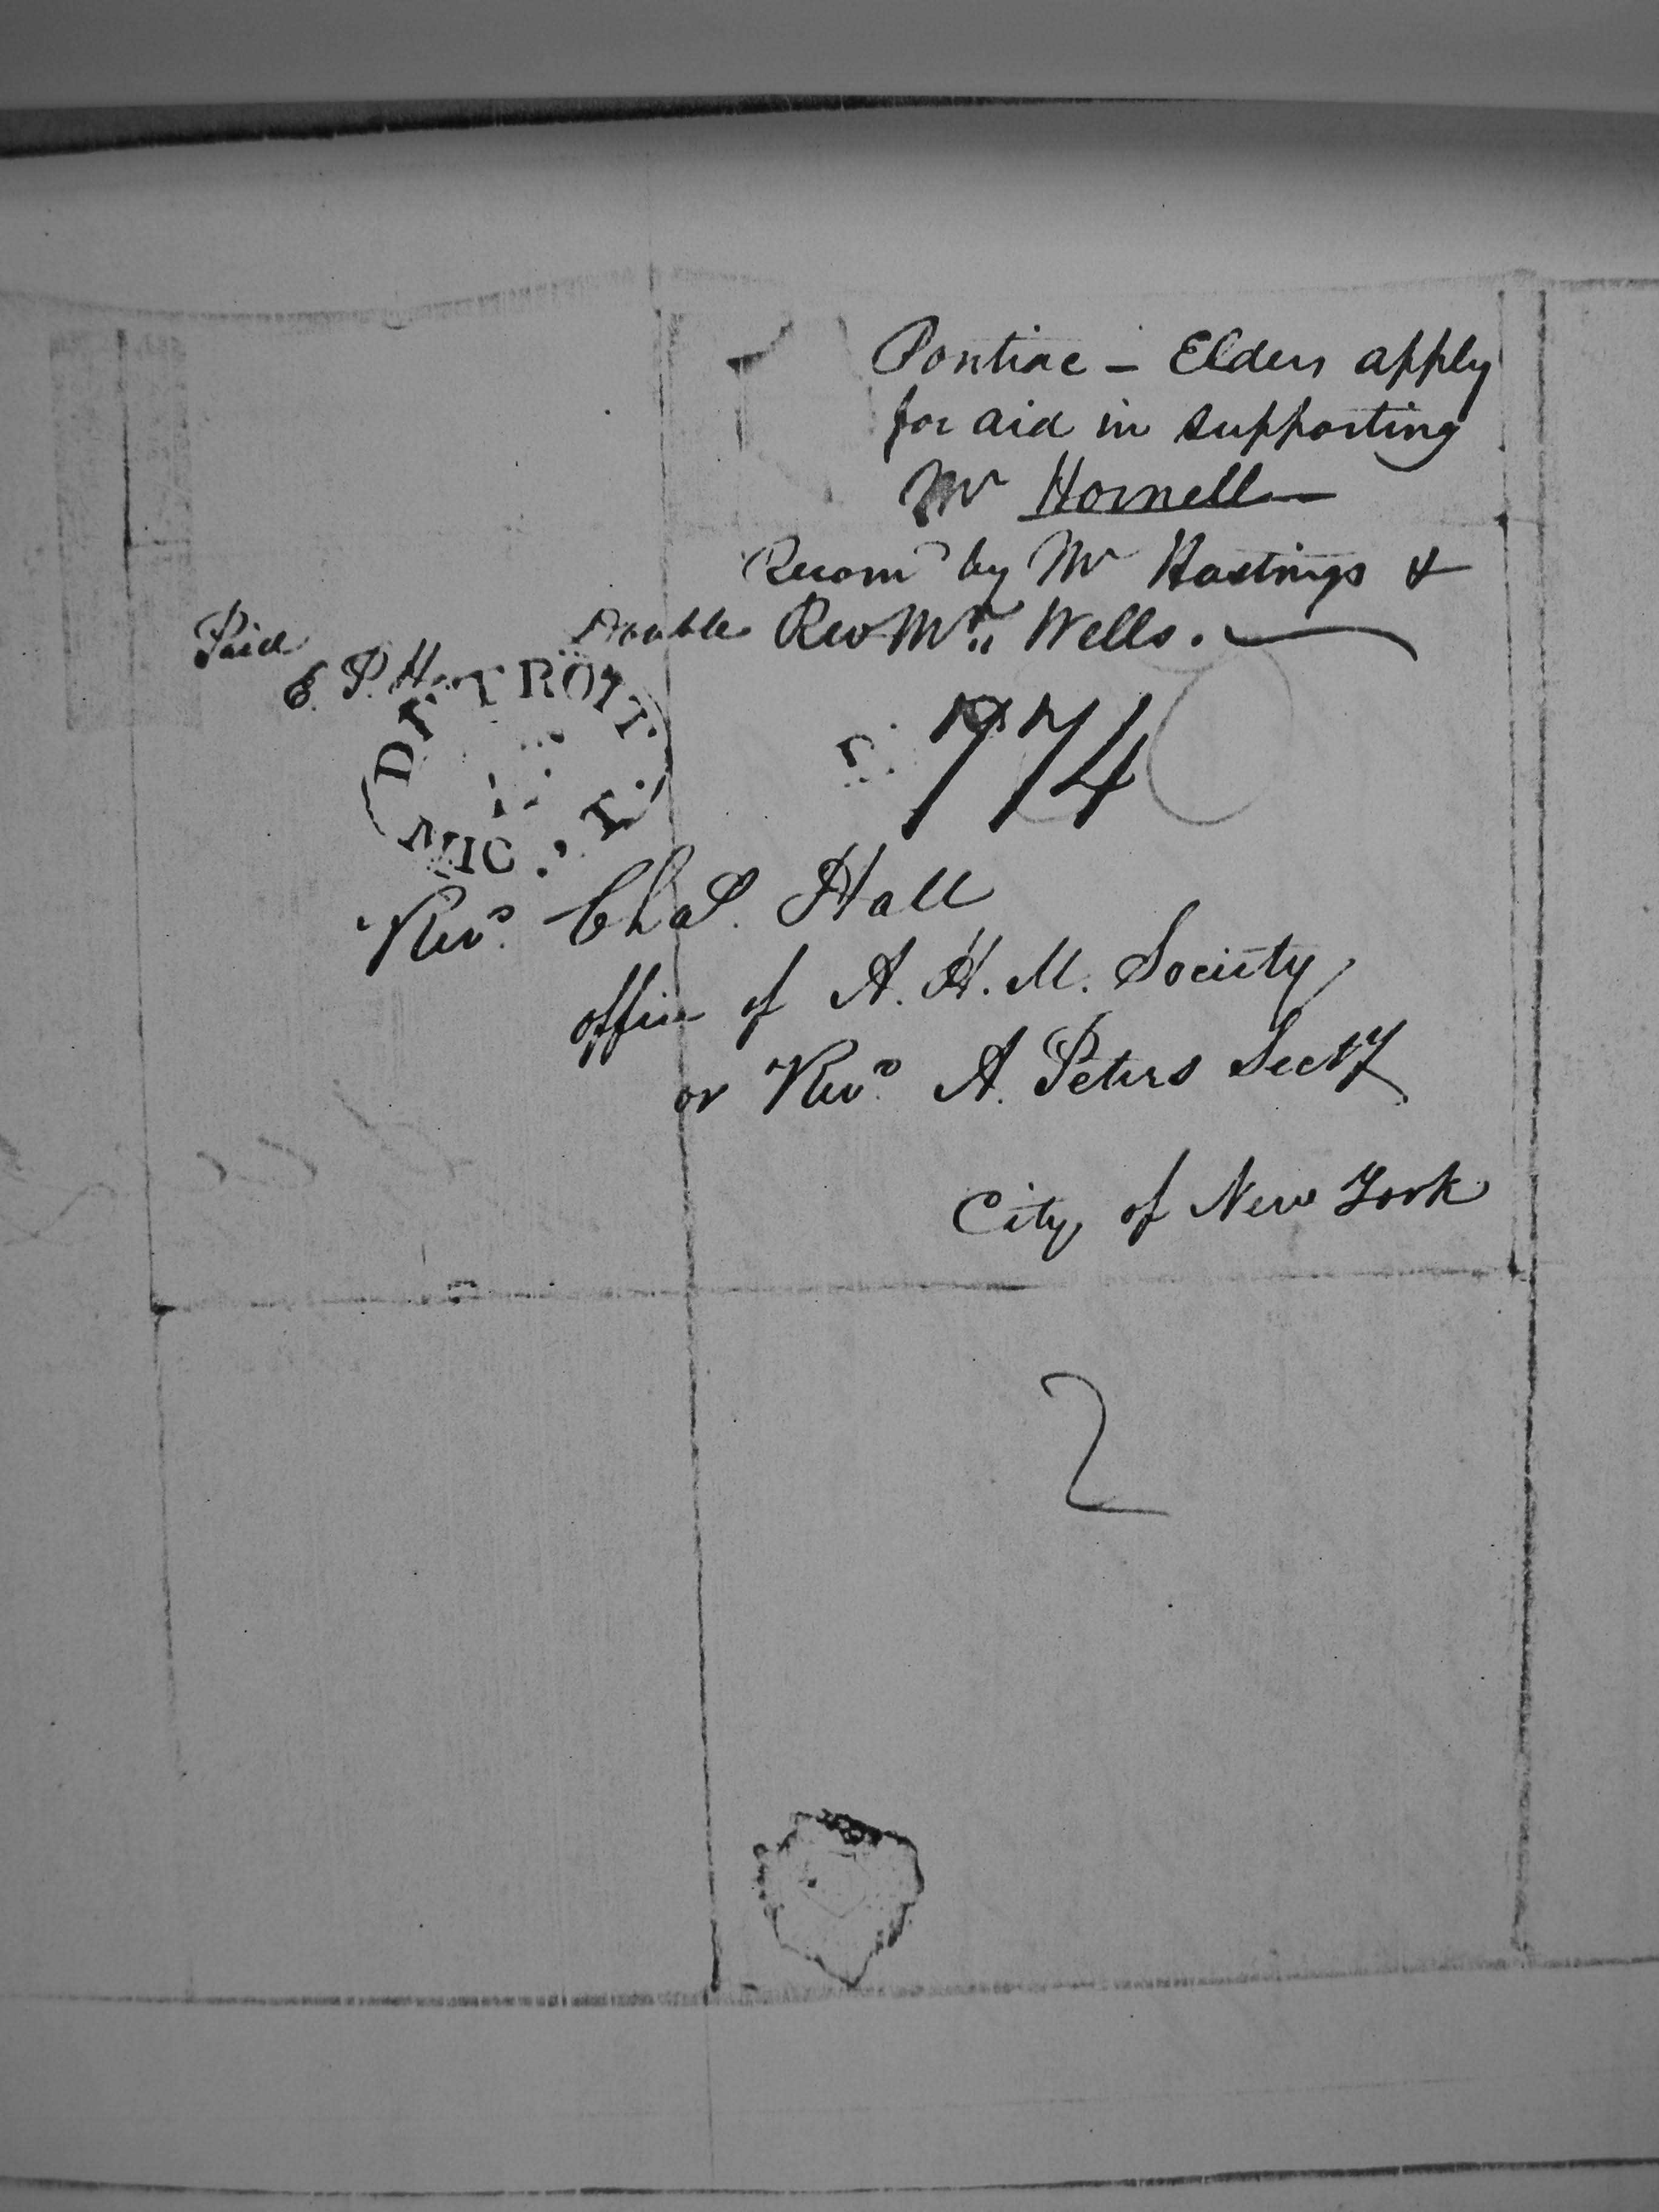 Pontiac – Elders apply
for aid in supporting
Mr Hornell
Recomd by Mr Hastings &
Rev Mr. Wells.
Paid
E. P. H.
Double
DETROIT
MIC. T.
774
Revd. Chas. Hall
office of A. H. M. Society
or Revd. A. Peters Secty
City of New York
2